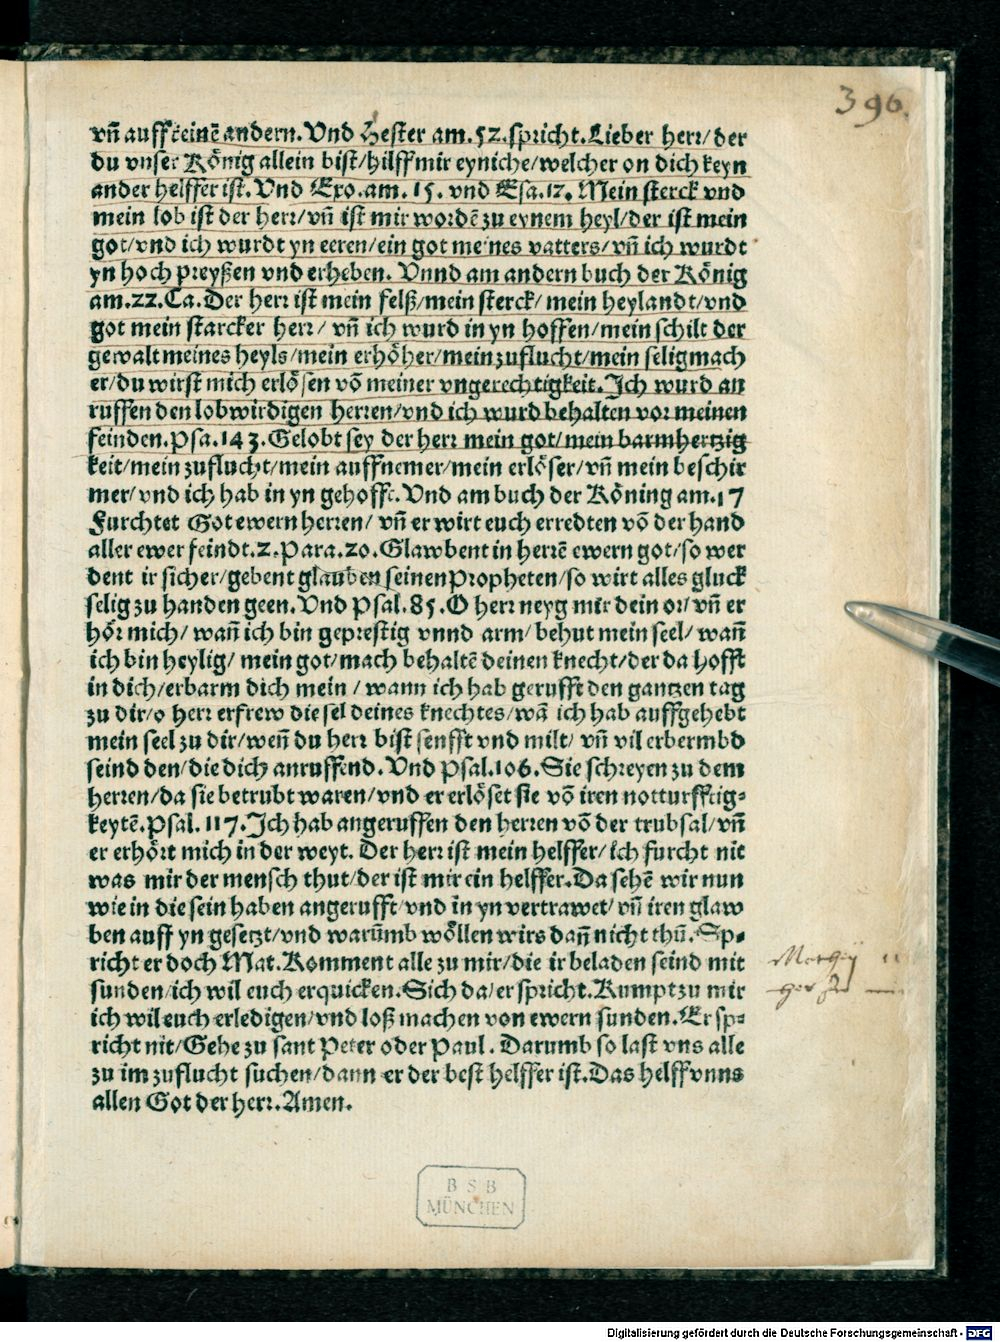 396.
vn̄ auff keinē andern. Vnd Hester am. 52. spricht. Lieber herr/ der
du vnser König allein bist/ hilff mir eyniche/ welcher on dich keyn
ander helffer ist. Vnd Exo. am. 15. vnd Esa. 12. Mein sterck vnd
mein lob ist der herr/ vn̄ ist mir wordē zu eynem heyl/ der ist mein
got/ vnd ich wurdt yn eeren/ ein got meines vatters/ vn̄ ich wurdt
yn hoch preyßen vnd erheben. Vnnd am andern buch der König
am. 22. Ca. Der herr ist mein felß/ mein sterck/ mein heylandt/ vnd
got mein starcker herr/ vn̄ ich wurd in yn hoffen/ mein schilt der
gewalt meines heyls/ mein erhöher/ mein zuflucht/ mein seligmach
er/ du wirst mich erlösen vō meiner vngerechtigkeit. Ich wurd an
ruffen den lobwirdigen herren/ vnd ich wurd behalten vor meinen
feinden. Psa. 143. Gelobt sey der herr mein got/ mein barmhertzig
keit/ mein zuflucht/ mein auffnemer/ mein erlöser/ vn̄ mein beschir
mer/ vnd ich hab in yn gehofft. Vnd am buch der Köning am. 17
Furchtet Got ewern herren/ vn̄ er wirt euch erredten vō der hand
aller ewer feindt. 2. Para. 20. Glawbent in herrē ewern got/ so wer
dent ir sicher/ gebent glauben seinen Propheten/ so wirt alles gluck
selig zu handen geen. Vnd Psal. 85. O herr neyg mir dein or/ vn̄ er
hör mich/ wan̄ ich bin geprestig vnnd arm/ behut mein seel/ wan̄
ich bin heylig/ mein got/ mach behaltē deinen knecht/ der da hofft
in dich/ erbarm dich mein / wann ich hab gerufft den gantzen tag
zu dir/ o herr erfrew die sel deines knechtes/ wā ich hab auffgehebt
mein seel zu dir/ wen̄ du herr bist senfft vnd milt/ vn̄ vil erbermbd
seind den/ die dich anruffend. Vnd Psal. 106. Sie schreyen zu dem
herren/ da sie betrubt waren/ vnd er erlöset sie vō iren notturfftig-
keytē. Psal. 117. Ich hab angeruffen den herren vō der trubsal/ vn̄
er erhört mich in der weyt. Der herr ist mein helffer/ ich furcht nit
was mir der mensch thut/ der ist mir ein helffer. Da sehē wir nun
wie in die sein haben angerufft/ vnd in yn vertrawet/ vn̄ iren glaw
ben auff yn gesetzt/ vnd warūmb wöllen wirs dan̄ nicht thū. Sp-
richt er doch Mat. Komment alle zu mir/ die ir beladen seind mit
sunden/ ich wil euch erquicken. Sich da/ er spricht. Kumpt zu mir
ich wil euch erledigen/ vnd loß machen von ewern sunden. Er sp-
richt nit/ Gehe zu sant Peter oder Paul. Darumb so last vns alle
zu im zuflucht suchen/ dann er der best helffer ist. Das helff vnns
allen Got der herr. Amen.
BSB
MÜNCHEN
Digitalisierung gefördert durch die Deutsche Forschungsgemeinschaft - DFG